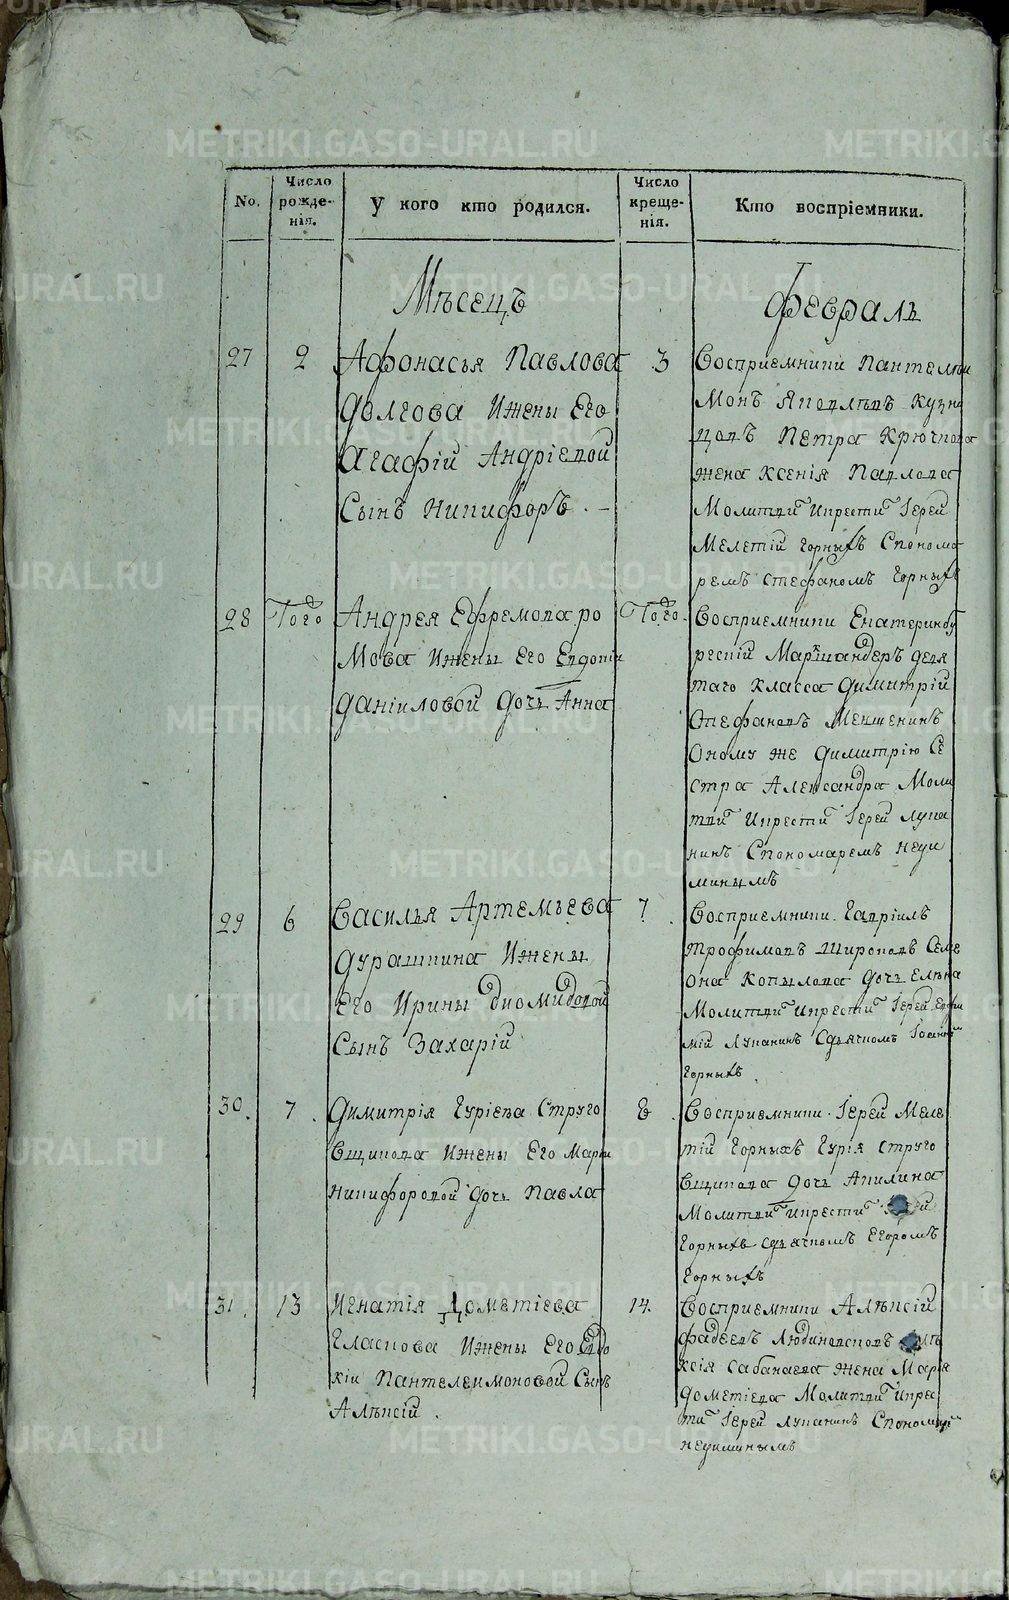 No.
Число рожде- нія.
У кого кто родился.
Число креще- нія.
Кто воспріемники.
Мѣсецъ
Февраль
27
2
Афонасья Павлова
Долгова Ижены Его
Агафіи Андріевой
Сынъ Никифоръ. –
3
Восприемники Пантелѣи
Монъ Яковлевъ Кузне
цовъ Петра Крючкова
жена Ксенія Павлова
Молитви Икрести Іерей
Мелетій Горныхъ Спонома
ремъ Стефаномъ Горныхъ
28
Того
Андрея Ефремова ро
Мова Ижены Его Евдокіи
Даніиловой Дочь Анна
Того.
Восприемники Екатеринбу
ргскій Маркшандеръ девя
таго Класса Димитрій
Стефановъ Меншенинъ
Оному же Димитрію Се
стра Александра Моли
тви Икрести Іерей Лука
нинъ Спономаремъ Неуи
минымъ
29
6
Василья Артемьева
Дурашкина Ижены
Его Ирины Диомидовой
Сынъ Захарій
7
Восприемники. Гавріилъ
Трофимовъ Широковъ Семе
она Копылова Дочь Елѣна
Молитви Икрести Іерей
мій Луканинъ Сдьячкомъ
Горныхъ.
30.
7.
Димитрія Гуріева Струго
Вщикова Ижены Его Марѳи
Никифоровой Дочь Павла
8.
Восприемники. Іерей Меле
тій Горныхъ Гурія Струго
Вщикова Дочь Акилина
Молитви Икрести
Горныхъ Сдьячкомъ Егоромъ
Горныхъ
31.
13
Игнатія Дометіева
Гласкова Ижены Его Евдо
кіи Пантелеимоновой Сынъ
Алѣксій.
14.
Восприемники Алѣксій
Фадѣевъ Людиновсковъ
ксія Сабанаева Жена Марія
Дометіева Молитви Икрес
ти Іерей Луканинъ Спономаремъ
Неуиминымъ
METRIKI.GASO-URAL.RU